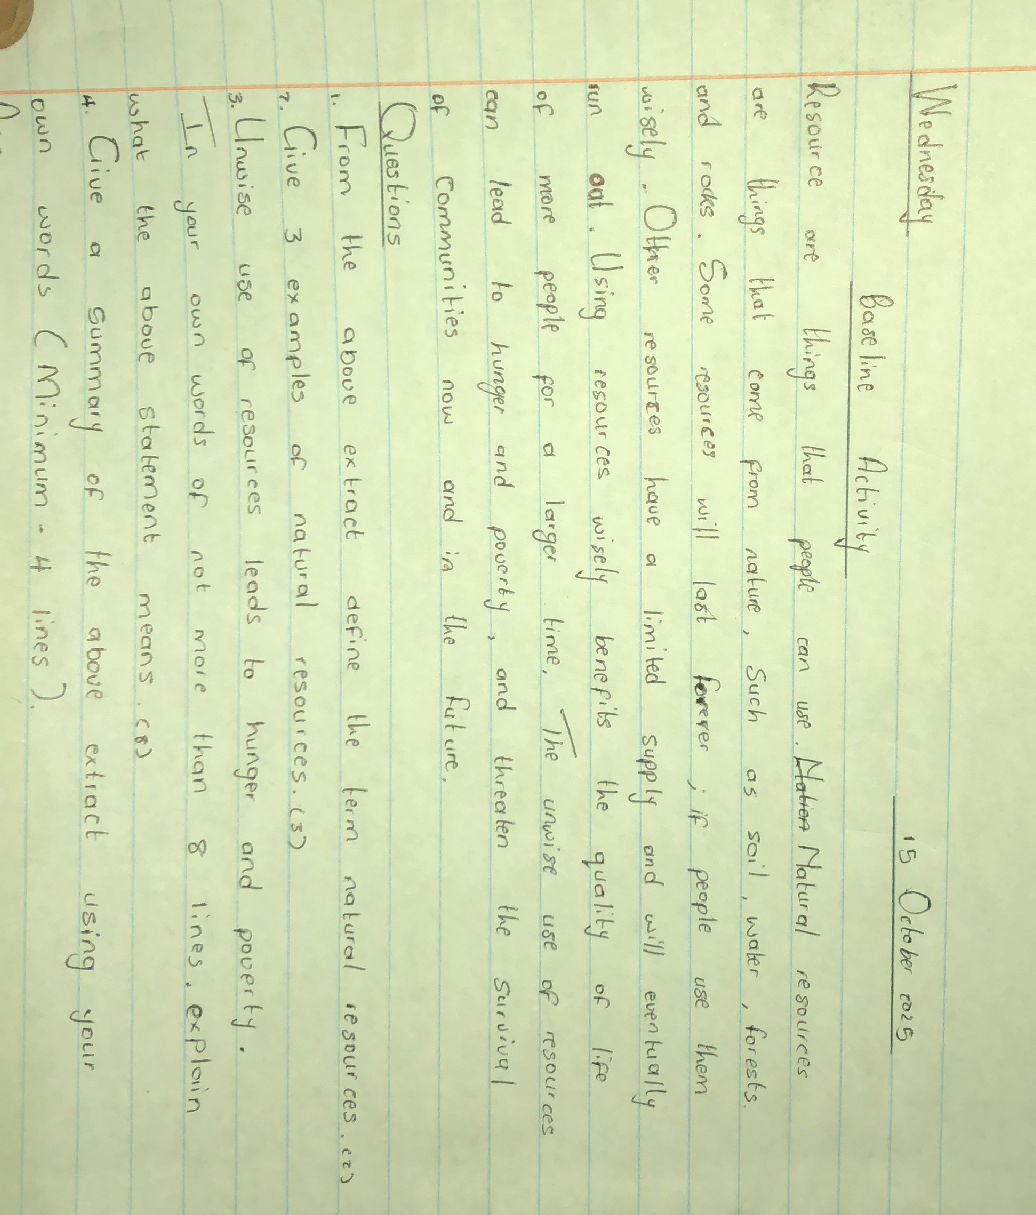 Wednesday 15 October 2025
Baseline Activity
Resource are things that people can use. Nation Natural resources
are things that come from nature, Such as soil, water, forests.
and rocks. Some resources will last forever ; if people use them
wisely. Other resources have a limited supply and will eventually
run out. Using resources wisely benefits the quality of life
of more people for a larger time. The unwise use of resources
can lead to hunger and poverty, and threaten the survival
of Communities now and in the future.
Questions
1. From the above extract define the term natural resources. (2)
2. Give 3 examples of natural resources. (3)
3. Unwise use of resources leads to hunger and poverty.
In your own words of not more than 8 lines, explain
what the above statement means. (8)
4. Give a summary of the above extract using your
own words (Minimum - 4 lines).